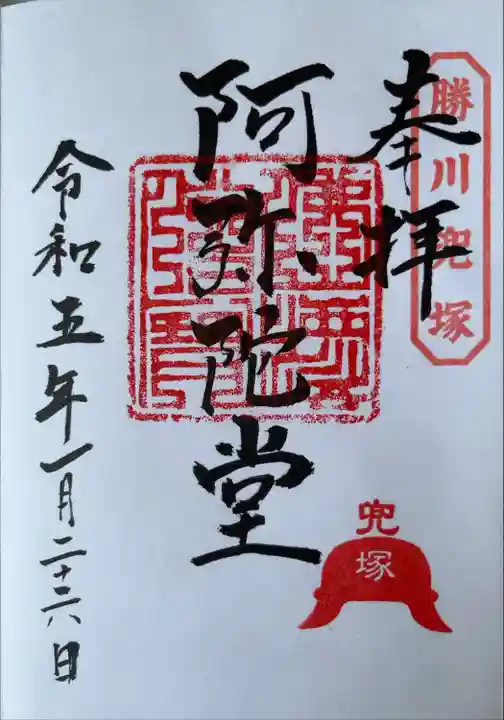 勝川兜塚
奉拝
阿弥陀堂
兜塚
令和五年一月二十六日